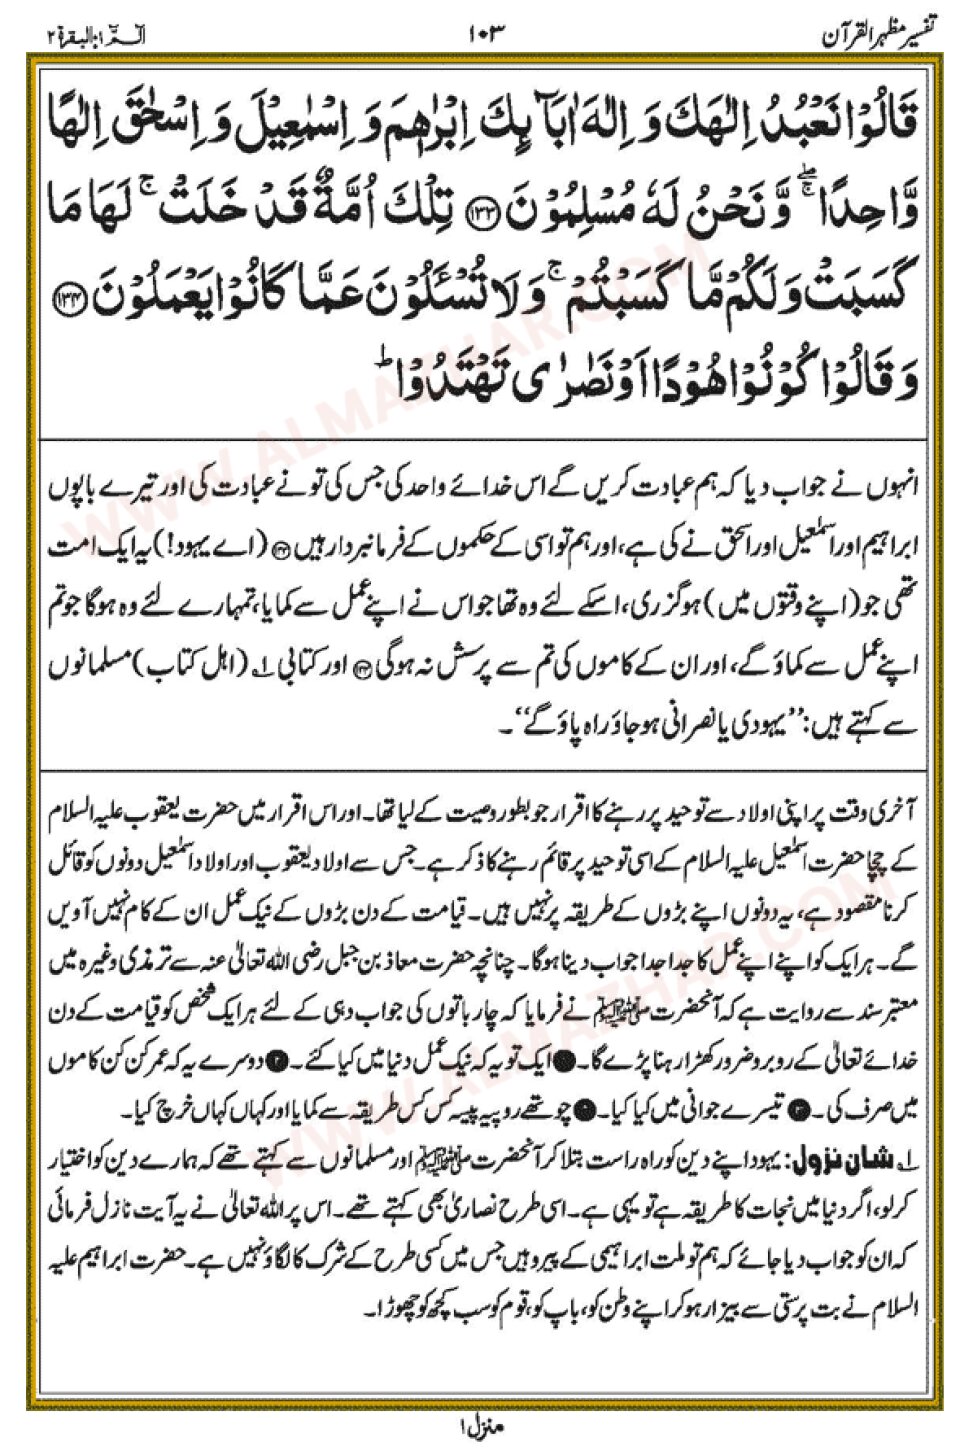 تفسیر مظہر القرآن
۱۰۳
الٓمّٓ ۱: البقرۃ ۲
قَالُوْا نَعْبُدُ اِلٰهَكَ وَ اِلٰهَ اٰبَآىِٕكَ اِبْرٰهٖمَ وَ اِسْمٰعِیْلَ وَ اِسْحٰقَ اِلٰهًا
وَّاحِدًا ۚۖ وَّ نَحْنُ لَهٗ مُسْلِمُوْنَ ﴿۱۳۳﴾ تِلْكَ اُمَّةٌ قَدْ خَلَتْ ۚ لَهَا مَا
كَسَبَتْ وَ لَكُمْ مَّا كَسَبْتُمْ ۚ وَ لَا تُسْـَٔلُوْنَ عَمَّا كَانُوْا یَعْمَلُوْنَ ﴿۱۳۴﴾
وَ قَالُوْا كُوْنُوْا هُوْدًا اَوْ نَصٰرٰى تَهْتَدُوْا ؕ
انہوں نے جواب دیا کہ ہم عبادت کریں گے اس خدائے واحد کی جس کی تو نے عبادت کی اور تیرے باپوں
ابراہیم اور اسمٰعیل اور اسحٰق نے کی ہے، اور ہم تو اسی کے حکموں کے فرمانبردار ہیں ﴿۱۳۳﴾ (اے یہود!) یہ ایک امت
تھی جو (اپنے وقتوں میں) ہو گزری، اسکے لئے وہ تھا جو اس نے اپنے عمل سے کمایا، تمہارے لئے وہ ہوگا جو تم
اپنے عمل سے کماؤ گے، اور ان کے کاموں کی تم سے پرسش نہ ہوگی ﴿۱۳۴﴾ اور کتابی ؂۱ (اہل کتاب) مسلمانوں
سے کہتے ہیں: ’’یہودی یا نصرانی ہو جاؤ راہ پاؤ گے‘‘۔
آخری وقت پر اپنی اولاد سے توحید پر رہنے کا اقرار جو بطور وصیت کے لیا تھا۔ اور اس اقرار میں حضرت یعقوب علیہ السلام
کے چچا حضرت اسمٰعیل علیہ السلام کے اسی توحید پر قائم رہنے کا ذکر ہے۔ جس سے اولاد یعقوب اور اولاد اسمٰعیل دونوں کو قائل
کرنا مقصود ہے، یہ دونوں اپنے بڑوں کے طریقہ پر نہیں ہیں۔ قیامت کے دن بڑوں کے نیک عمل ان کے کام نہیں آویں
گے۔ ہر ایک کو اپنے اپنے عمل کا جدا جدا جواب دینا ہوگا۔ چنانچہ حضرت معاذ بن جبل رضی اللہ تعالیٰ عنہ سے ترمذی وغیرہ میں
معتبر سند سے روایت ہے کہ آنحضرت ﷺ نے فرمایا کہ چار باتوں کی جواب دہی کے لئے ہر ایک شخص کو قیامت کے دن
خدائے تعالیٰ کے روبرو ضرور کھڑا رہنا پڑے گا۔ ❶ ایک تو یہ کہ نیک عمل دنیا میں کیا کئے۔ ❷ دوسرے یہ کہ عمر کن کن کاموں
میں صرف کی۔ ❸ تیسرے جوانی میں کیا کیا۔ ❹ چوتھے روپیہ پیسہ کس کس طریقہ سے کمایا اور کہاں کہاں خرچ کیا۔
؂۱ شان نزول: یہود اپنے دین کو راہ راست بتلا کر آنحضرت ﷺ اور مسلمانوں سے کہتے تھے کہ ہمارے دین کو اختیار
کر لو، اگر دنیا میں نجات کا طریقہ ہے تو یہی ہے۔ اسی طرح نصاریٰ بھی کہتے تھے۔ اس پر اللہ تعالیٰ نے یہ آیت نازل فرمائی
کہ ان کو جواب دیا جائے کہ ہم تو ملت ابراہیمی کے پیرو ہیں جس میں کسی طرح کے شرک کا لگاؤ نہیں ہے۔ حضرت ابراہیم علیہ
السلام نے بت پرستی سے بیزار ہو کر اپنے وطن کو، باپ کو، قوم کو سب کچھ کو چھوڑا۔
منزل ۱
WWW.ALMAZHAR.COM
WWW.ALMAZHAR.COM